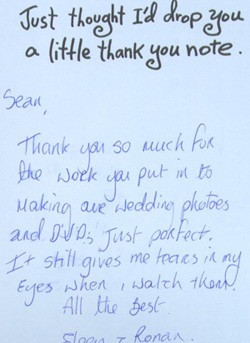 Just thought I'd drop you
a little thank you note.
Sean,
Thank you so much for
the work you put in to
making our wedding photoes
and DVD's Just perfect.
It still gives me tears in my
Eyes when I watch them.
All the Best.
& Ronan.